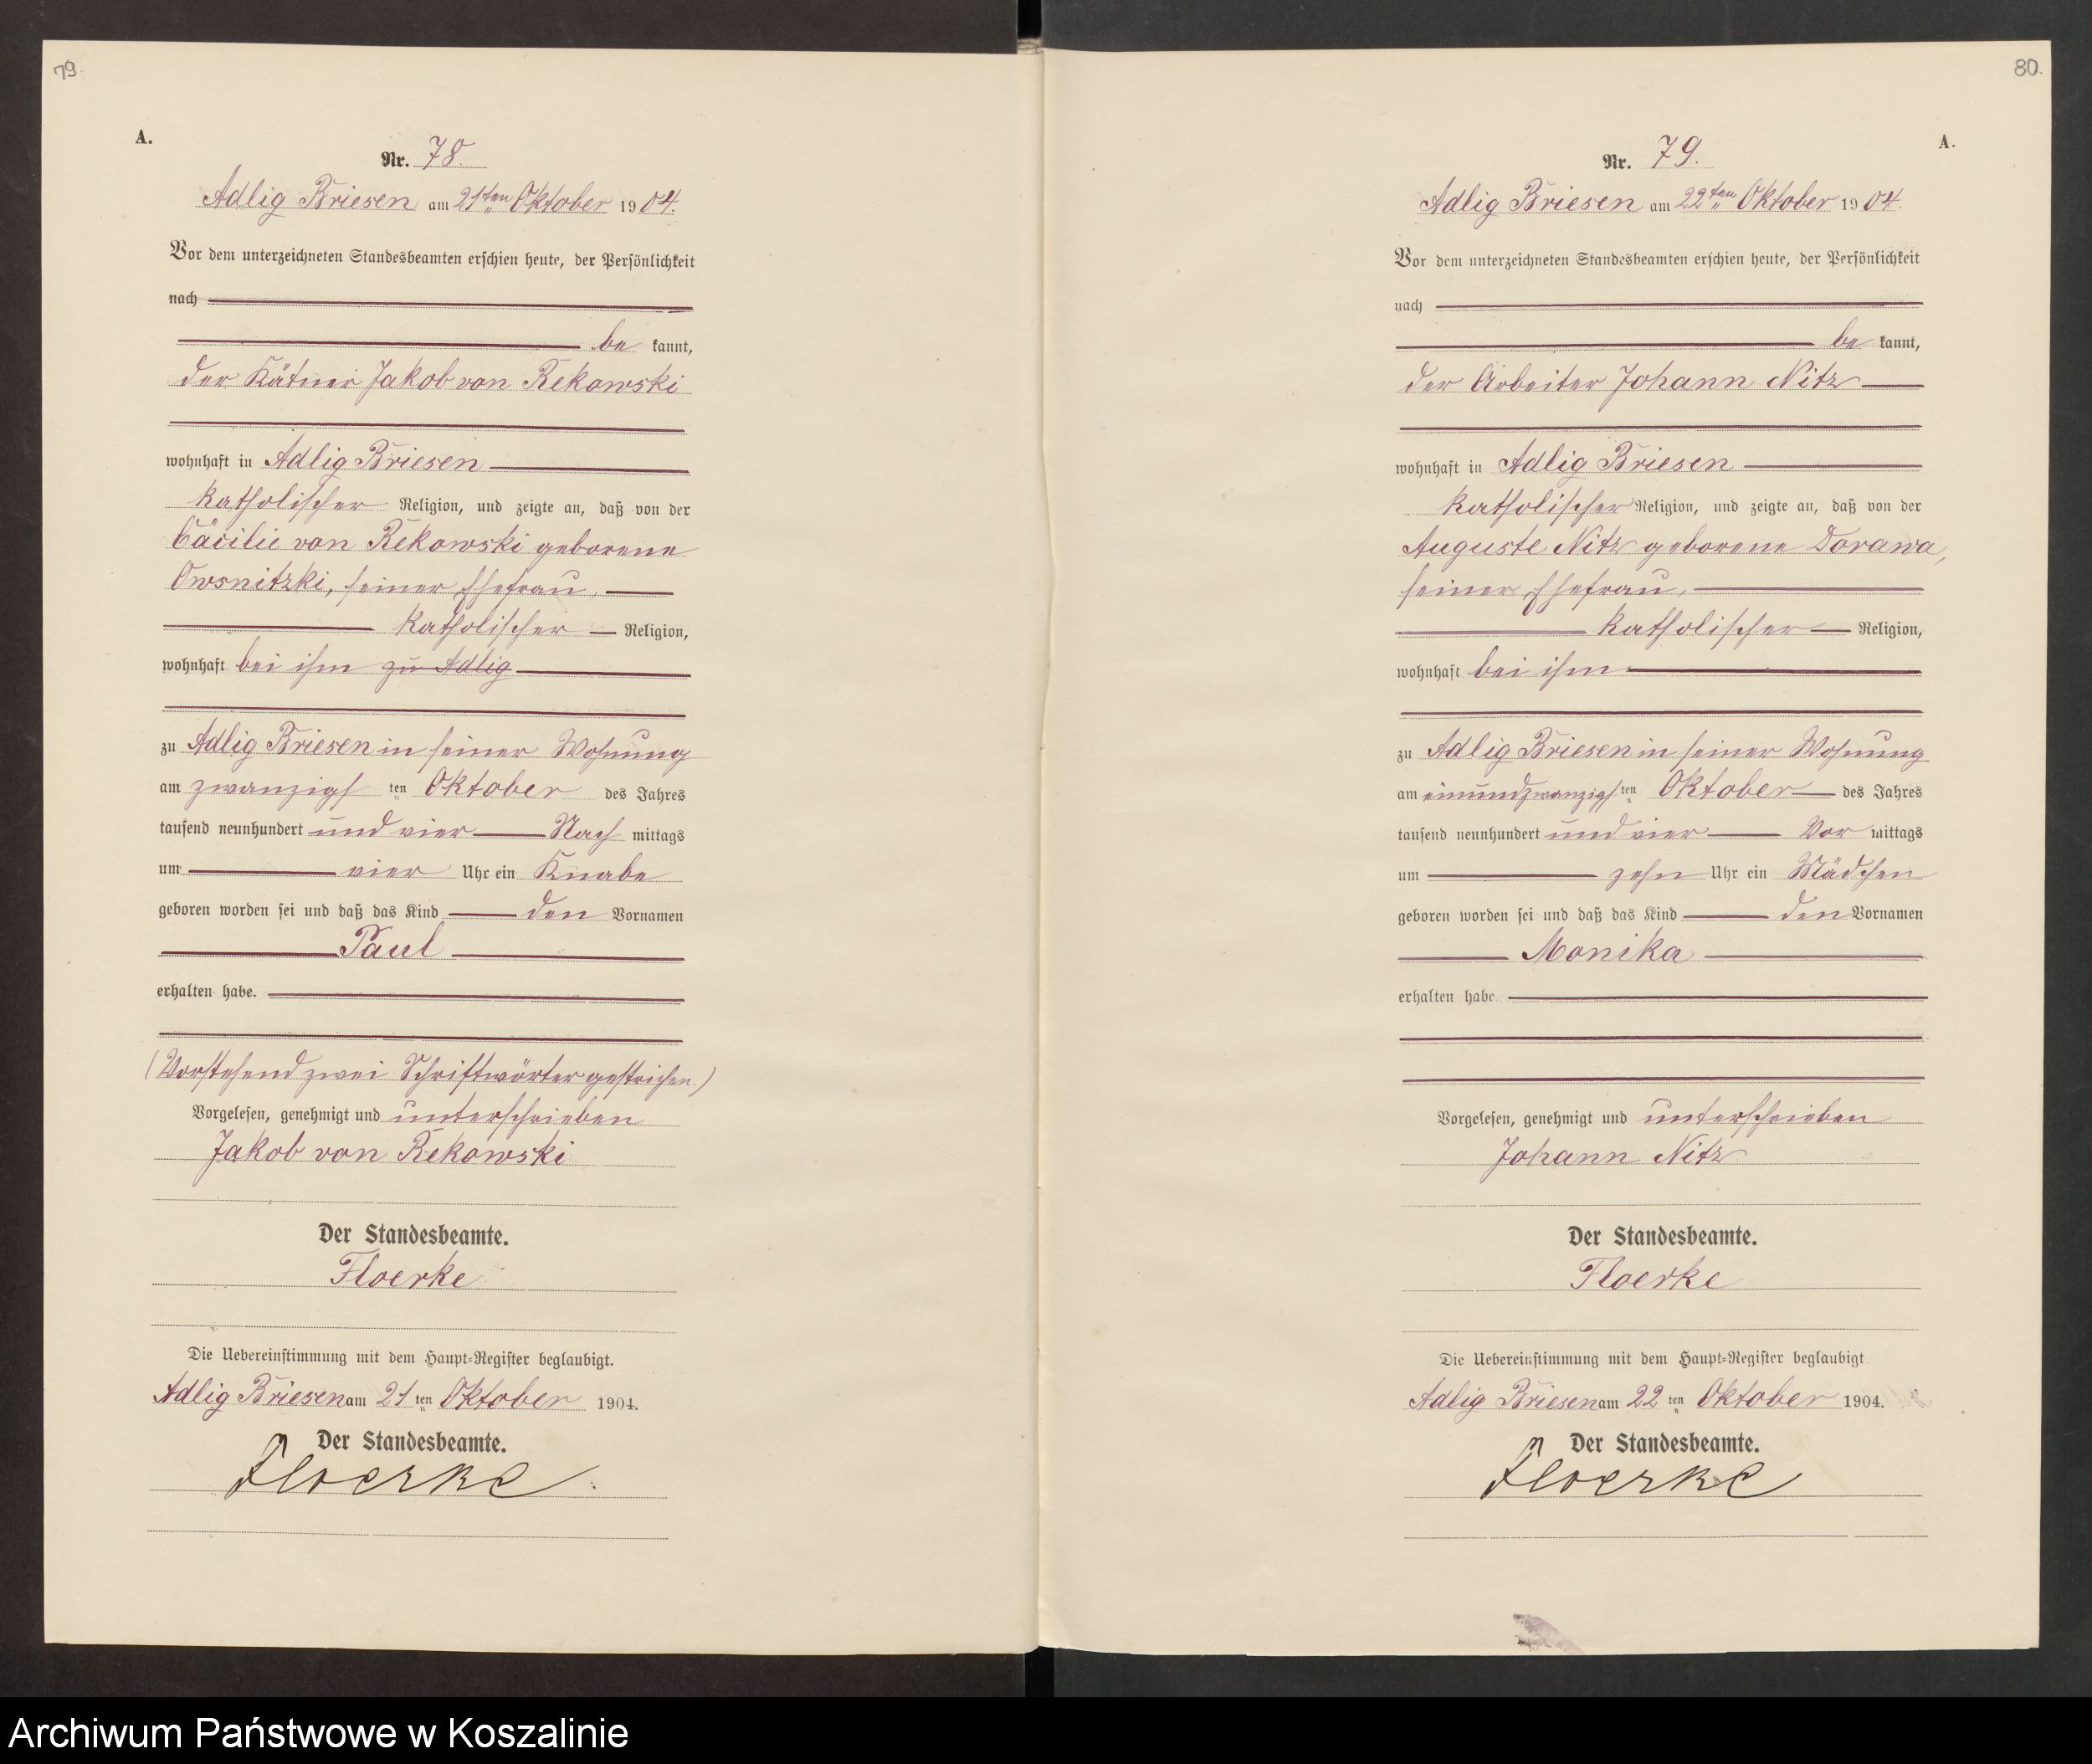 79.
A.
Nr. 78.
Adlig Briesen am 21ten Oktober 1904.
Vor dem unterzeichneten Standesbeamten erschien heute, der Persönlichkeit
nach
be kannt,
der Kätner Jakob von Rekowski
wohnhaft in Adlig Briesen
katholischer Religion, und zeigte an, daß von der
Cäcilie von Rekowski geborene
Owsnitzki, seiner Ehefrau,
katholischer Religion,
wohnhaft bei ihm zu Adlig
zu Adlig Briesen in seiner Wohnung
am zwanzigsten Oktober des Jahres
tausend neunhundert und vier Nach mittags
um vier Uhr ein Knabe
geboren worden sei und daß das Kind den Vornamen
Paul
erhalten habe.
(Vorstehend zwei Schriftwörter gestrichen.)
Vorgelesen, genehmigt und unterschrieben
Jakob von Rekowski
Der Standesbeamte.
Floerke
Die Uebereinstimmung mit dem Haupt-Register beglaubigt.
Adlig Briesen am 21ten Oktober 1904.
Der Standesbeamte.
Floerke.
80.
A.
Nr. 79.
Adlig Briesen am 22ten Oktober 1904.
Vor dem unterzeichneten Standesbeamten erschien heute, der Persönlichkeit
nach
be kannt,
der Arbeiter Johann Nitz
wohnhaft in Adlig Briesen
katholischer Religion, und zeigte an, daß von der
Auguste Nitz geborene Dorawa,
seiner Ehefrau,
katholischer Religion,
wohnhaft bei ihm
zu Adlig Briesen in seiner Wohnung
am einundzwanzigsten Oktober des Jahres
tausend neunhundert und vier Vor mittags
um zehn Uhr ein Mädchen
geboren worden sei und daß das Kind den Vornamen
Monika
erhalten habe
Vorgelesen, genehmigt und unterschrieben
Johann Nitz
Der Standesbeamte.
Floerke
Die Uebereinstimmung mit dem Haupt-Register beglaubigt
Adlig Briesen am 22ten Oktober 1904.
Der Standesbeamte.
Floerke
Archiwum Państwowe w Koszalinie